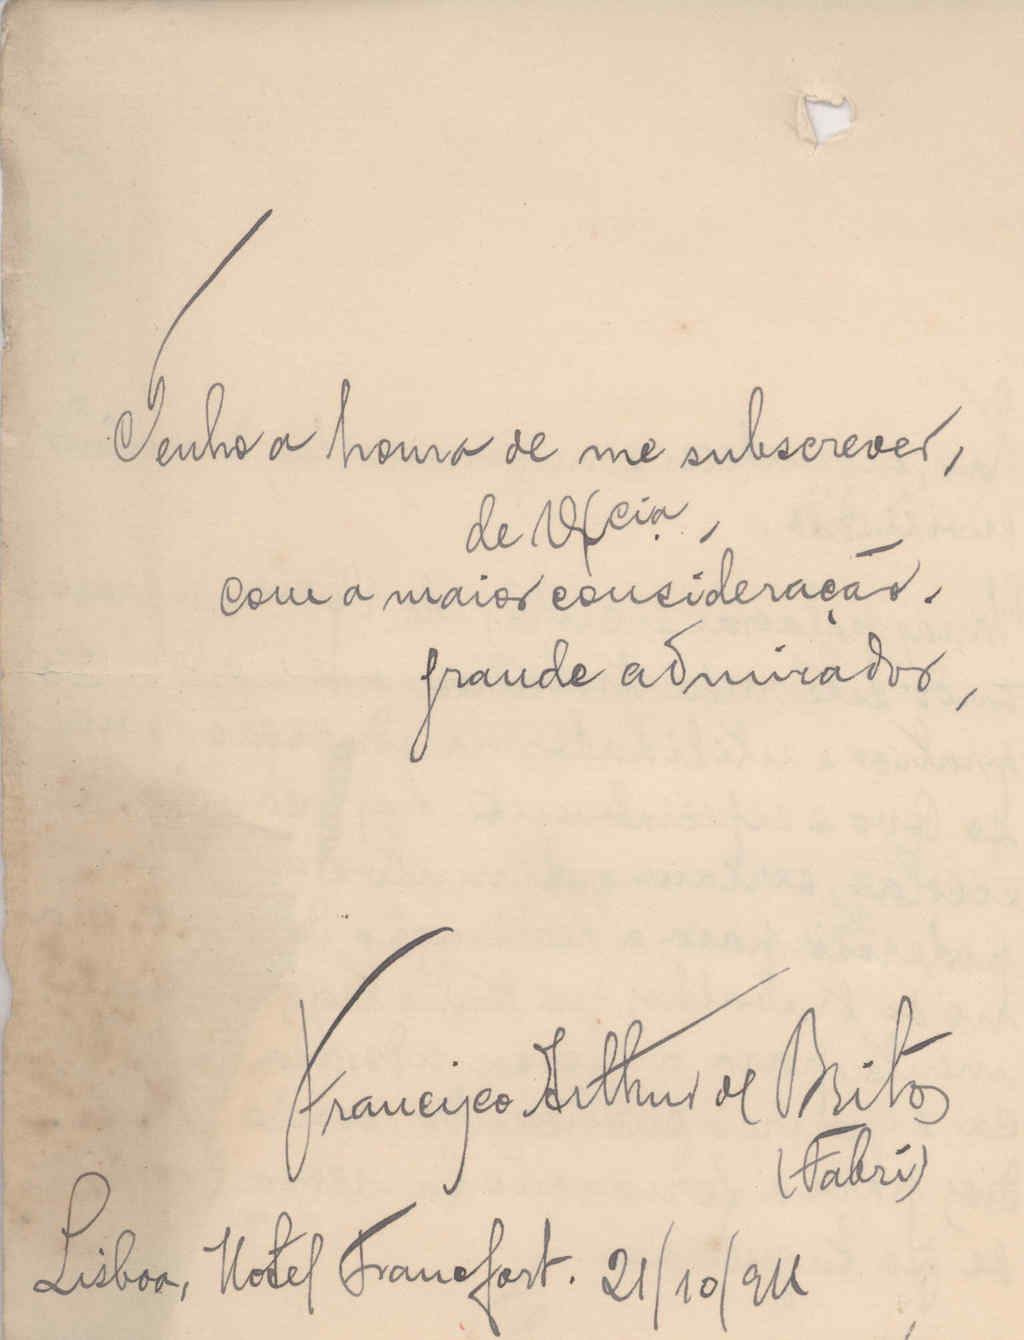 Tenho a honra de me subscrever,
de V. Excia,
com a maior consideração.
grande admirador,
Francisco Arthur de Brito
(Fabri)
Lisboa, Hotel Francfort. 21/10/911